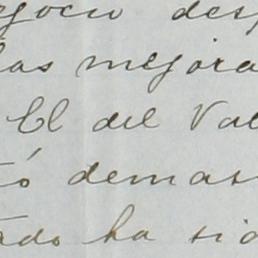 egocio desp
las mejora
El del Val
tó demas
tado ha sid